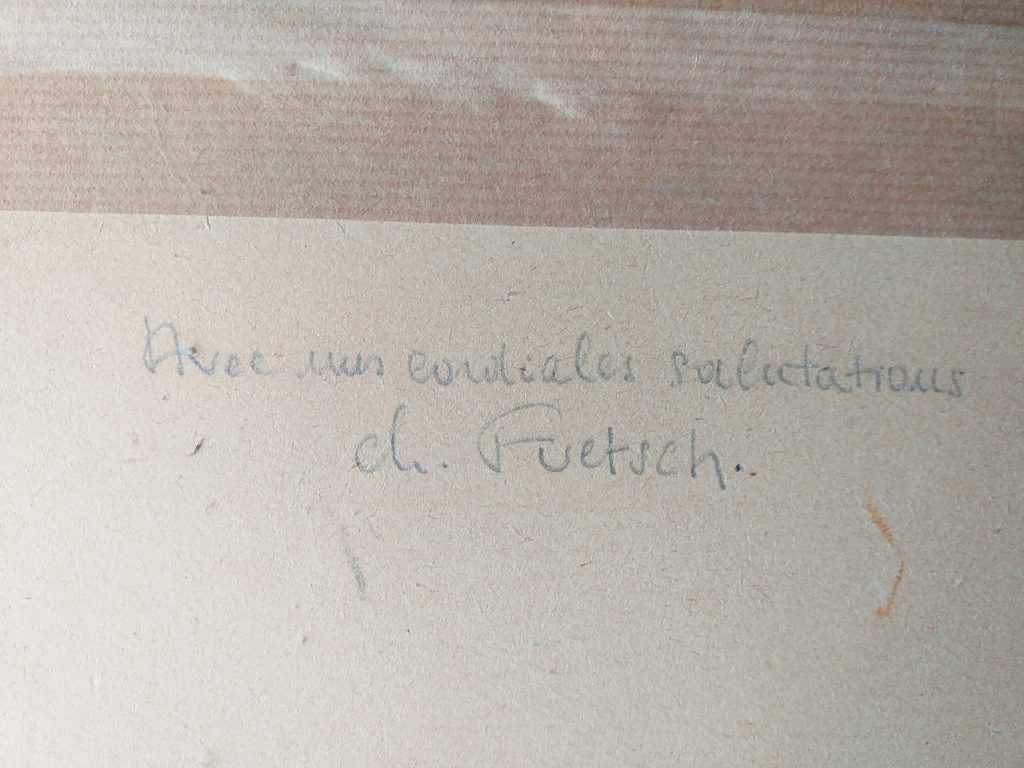 Avec nos cordiales salutations
ch. Fuetsch.